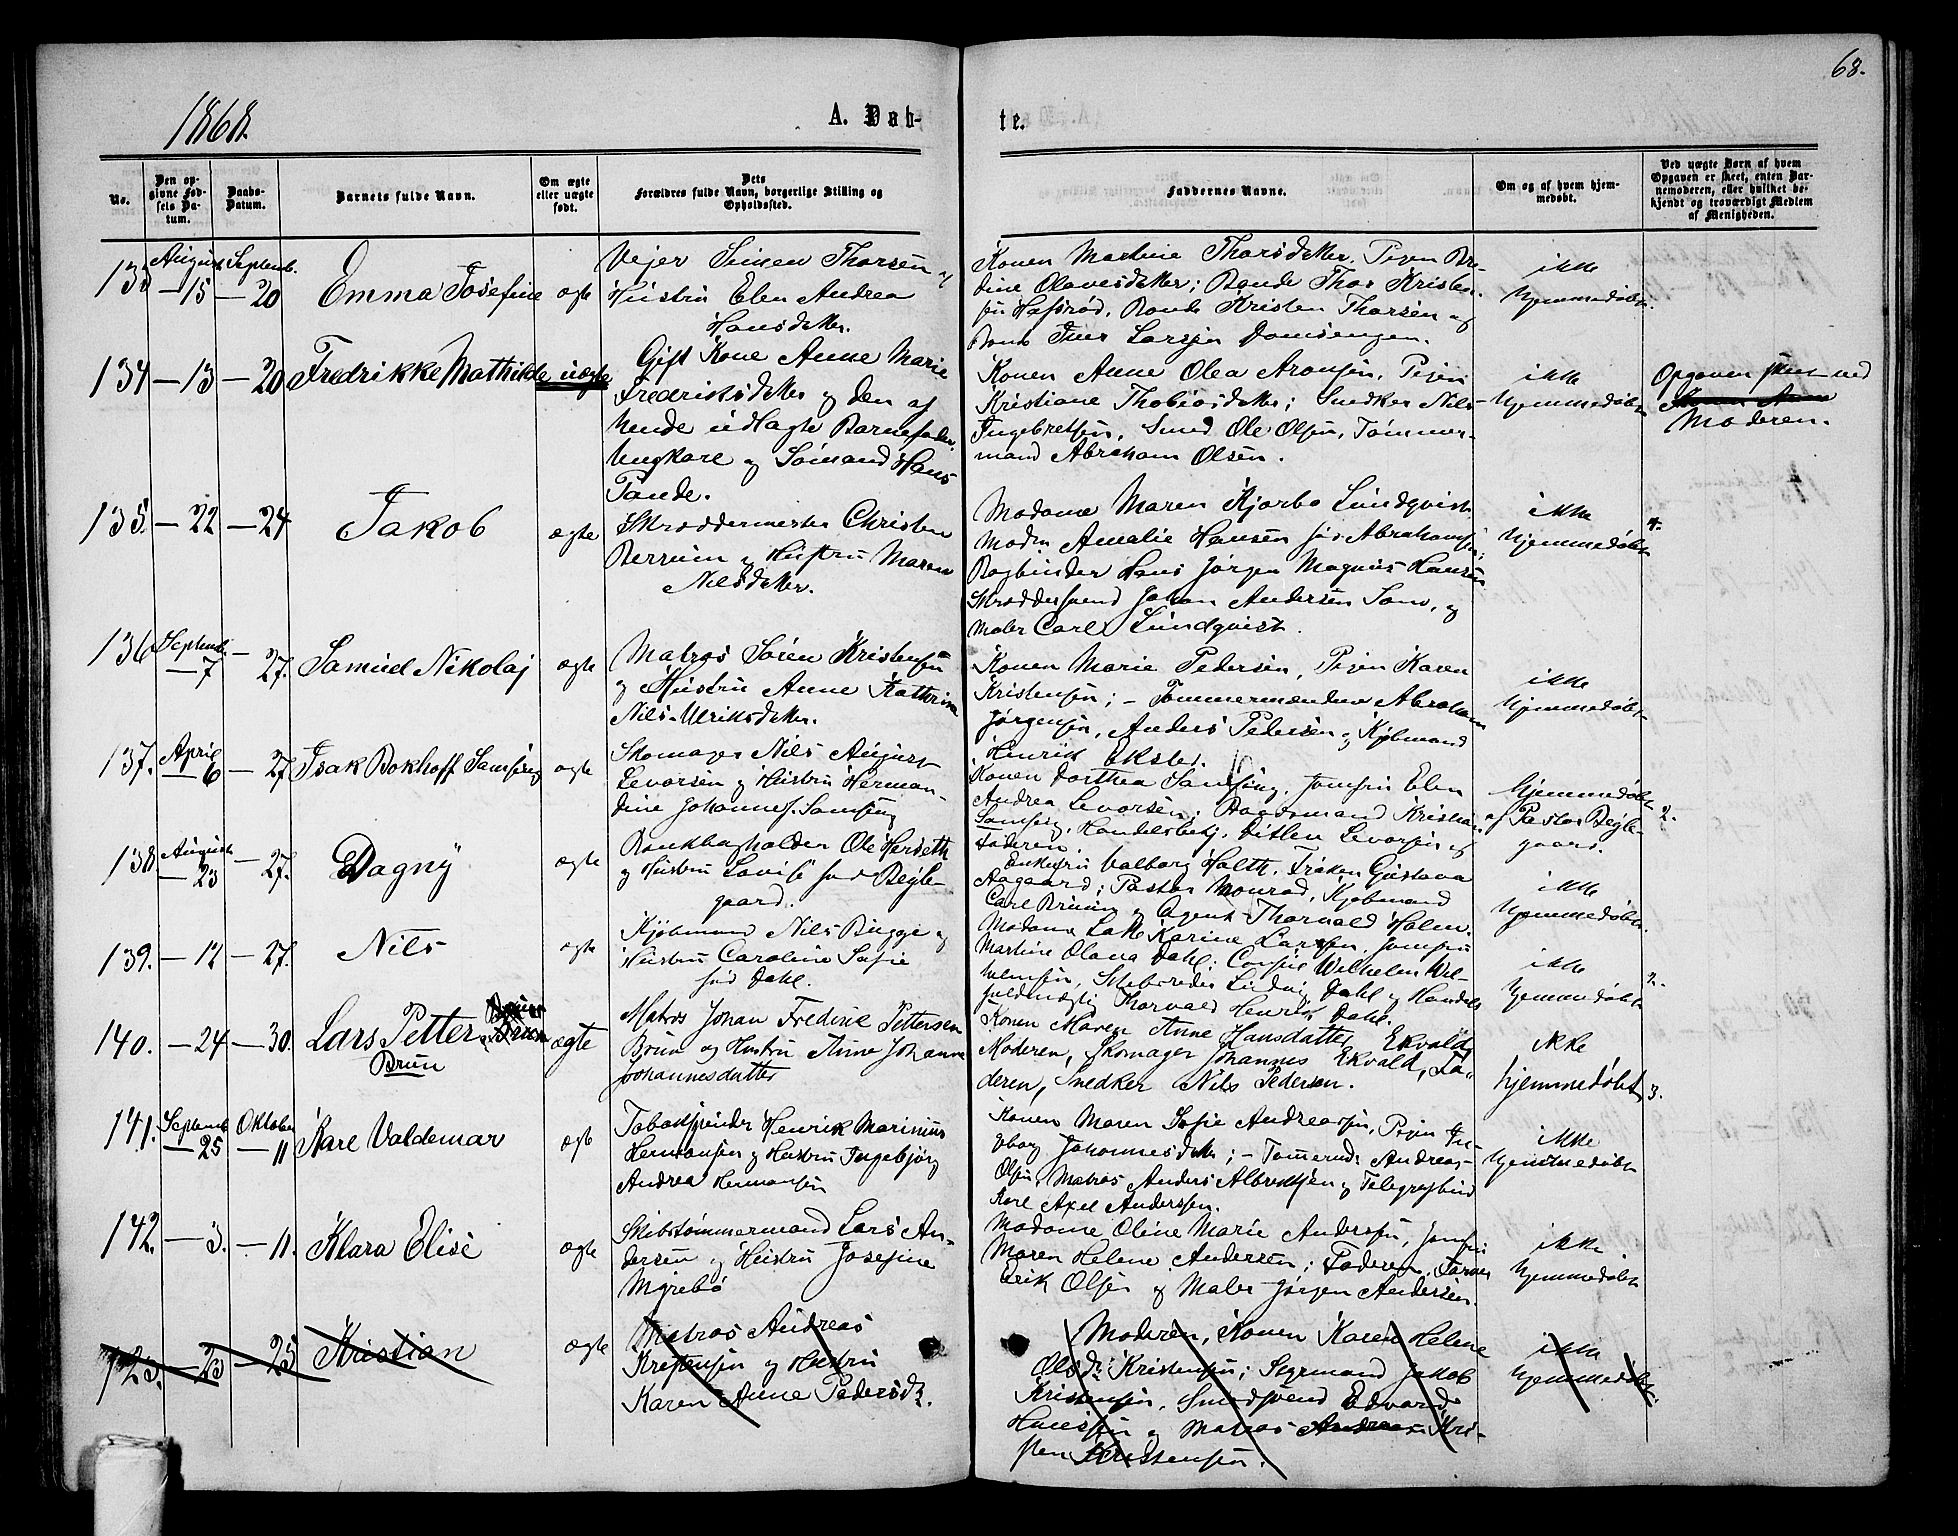 68.
1868.
A. Døb-
te.
No.
Den op-
givne Fød-
sels Da-
tum.
Daabs-
Datum.
Barnets fulde Navn.
Om ægte
eller uægte
født.
Dets
Forældres fulde Navn, borgerlige Stilling og
Opholdssted.
Faddernes Navne.
Om og af hvem hjem-
medøbt.
Ved uægte Børn af hvem
Opgaven er skeet, enten Bar-
nemoderen, eller hvilket be-
kjendt og troværdigt Medlem
af Menigheden.
133 August 15 Septemb. 20 Emma Josefine ægte
Vejer Simen Thorsen og
Hustru Elen Andrea
Hansdatter.
Konen Martine Thorsdatter, Pigen Be-
dine Olavesdatter; Bonde Thor Kristen-
sen Hafsrød, Bonde Kristen Thorsen og
Bonde Iver Larsen
ikke
hjemmedøbt.
134 — 13 — 20 Fredrikke Mathilde uægte
Gift Kone Anne Marie
Fredriksdatter og den af
hende udlagte Barnefader
Ungkarl og Sømand Hans
Tande.
Konen Anne Olea Aronsen, Pigen
Kristiane Thobiasdatter; Snedker Nils
Ingebretsen, Smed Ole Olsen, Tømmer-
mand Abraham Olsen.
ikke
hjemmedøbt
Opgaven skeet ved
Moderen.
135. — 22 — 24 Jakob ægte
Skræddermester Christen
Berrum og Hustru Maren
Nilsdatter.
Madame Maren Kjerbo Lundqvist,
Madm Amalie Hansen født Abrahamsen;
Bogbinder Hans Jørgen Magnus Hansen
Skræddersvend Johan Andersen og
Maler Carl Lundqvist.
ikke
hjemmedøbt
4.
136 Septemb. 7 — 27. Samuel Nikolaj ægte
Matros Søren Kristensen
og Hustru Anne Kathrine
Nils-Ulriksdatter.
Konen Marie Pedersen, Pigen Karen
Kristensen; — Tømmermændene Abraham
Jørgensen, Anders Pedersen og Kjøbmand
Henrik Ekster.
ikke
hjemmedøbt
137. April 6 — 27 Isak Bokhoff Samsing ægte
Skomager Nils August
Levorsen og Hustru Herman-
dine Johannes. Samsing
Konen Dorthea Samsing, Jomfru Elen
Andrea Levorsen; Kristian
Samsing, Handelsbetj. Ditlev Levorsen og
Faderen.
hjemmedøbt
af Pastor Bugge-
gaard.
2.
138. August 23 — 27. Dagny ægte
Bankbogholder Ole Herseth
og Hustru Lovise født
gaard.
Enkefru Valborg Holth, Frøken Gustava
Aagaard; Pastor Monrad, Kjøbmand
Carl Bruun og Agent Thorvald Holm.
ikke
hjemmedøbt.
139. — 12 — 27. Nils ægte
Kjøbmand Nils Bugge og
Hustru Caroline Sofie
født Dahl.
Madame Karine Larsen, Jomfru
Martine Olava Dahl; Consul Wilhelm Wil-
helmsen, Skibsreder Ludvig Dahl og Handels
fuldmægtig Thorvald Henrik Dahl.
ikke
hjemmedøbt
2.
140. — 24 — 30. Lars Petter
Brun ægte
Matros Johan Fredrik Pettersen
Brun og Hustru Anne Johanne
Johannesdatter
Konen Maren Anne Hansdatter Ekvald,
Moderen, Skomager Johannes Ekvald, Fa-
deren, Snedker Nils Pedersen.
ikke
hjemmedøbt
3.
141. Septemb. 25 Oktober 11 Karl Valdemar ægte
Tobakspinder Henrik Marinius
Hermansen og Hustru Ingebjørg
Andrea Hermansen
Konen Maren Sofie Andreassen, Pigen In-
gborg Johannesdatter; — Tømmermd. Andreas
Olsen, Matros Anders Albrektsen og Telegrafbud
Karl Axel Anderssen.
ikke
hjemmedøbt
142. — 3. — 11. Klara Elise ægte
Skibstømmermand Lars An-
dersen og Hustru Josefine
Myrebø
Madame Oline Marie Anderssen, Jomfru
Maren Helene Andersen; Faderen, Farver
Erik Olsen og Maler Jørgen Andersen.
ikke
hjemmedøbt
123. — 23 — 25 Kristian ægte
Matros Andreas
Kristensen og Hustru
Karen Anne Pedersdt.
Moderen, Konen Karen Helene
Olsdr. Kristensen; Styrmand Jakob
Kristensen, Smedsvend Edvard
Hansen og Matros Andreas Kri-
sten Kristensen.
ikke
hjemmedøbt.